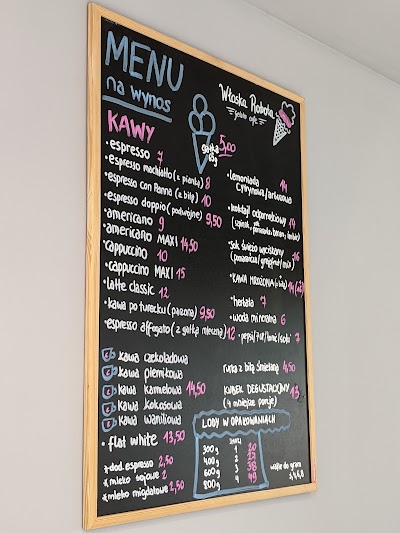 MENU
na wynos
Włoska Robota
KAWY
gałka 5,00
• espresso 7
• espresso macchiatto (z pianką) 8
• espresso con Panna (z bitą) 10
• espresso doppio (podwójne) 9,50
• americano 9
• americano MAXI 14,50
• cappuccino 10
• cappuccino MAXI 15
• latte classic 12
• kawa po turecku (parzona) 9,50
• espresso affogato (z gałką mleczną) 12
kawa czekoladowa
kawa piernikowa
kawa karmelowa 14,50
kawa kokosowa
kawa waniliowa
• flat white 13,50
* dod. espresso 2,50
* mleko sojowe 2
* mleko migdałowe 2,50
• lemoniada
cytrynowa/arbuzowa 14
• koktajl odpornościowy 19
• sok świeżo wyciskany
(pomarańcza/grejpfrut/mix) 16
• KAWA MROŻONA
• herbata 7
• woda mineralna 6
• pepsi/7up/mirinda
rurka z bitą śmietaną 4,50
KUBEK DEGUSTACYJNY 13
(4 mniejsze porcje)
LODY W OPAKOWANIACH
300g 1 20
400g 2
600g 3 38
800g 4 49